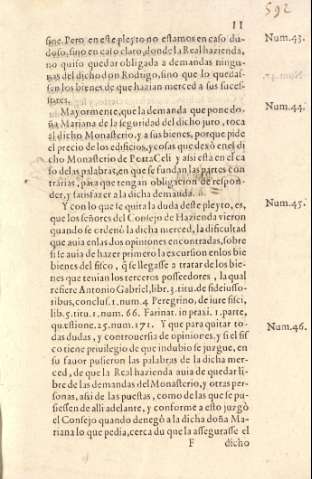 592
11
sine. Pero en este pleyto no estamos en caso du-
doso, sino en caso claro, donde la Real hazienda,
no quiso quedar obligada a demandas ningu-
nas del dicho don Rodrigo, sino que lo quedas-
sen los bienes de que hazian merced a sus suces-
sores.
Num. 43.
Mayormente, que la demanda que pone do-
ña Mariana de la seguridad del dicho juro, toca
al dicho Monasterio, y a sus bienes, porque pide
el precio de los edificios, y cosas que dexò en el di
cho Monasterio de PortaCeli y assi està en el ca
so de las palabras, en que se fundan las partes con
trarias, para que tengan obligacion de respon-
der, y satisfazer a la dicha demanda.
Num. 44.
Y con lo que se quita la duda deste pleyto, es,
que los señores del Consejo de Hazienda vieron
quando se ordenò la dicha merced, la dificultad
que auia en las dos opiniones encontradas, sobre
si se auia de hazer primero la excursion en los bie
bienes del fisco, q̃ se llegasse a tratar de los bie-
nes que tenian los terceros posseedores, la qual
refiere Antonio Gabriel, libr. 3. titu. de fideiusso-
ribus, conclus. 1. num. 4 Peregrino, de iure fisci,
lib. 5. titu. 1. num. 66. Farinat. in praxi. 1. parte,
quæstione. 25. num. 171. Y que para quitar to-
das dudas, y controuersia de opiniones, y si el fis-
co tiene priuilegio de que in dubio se juzgue, en
su fauor pusieron las palabras de la dicha mer-
ced, de que la Real hazienda auia de quedar li-
bre de las demandas del Monasterio, y otras per-
sonas, assi de las puestas, como de las que se pu-
siessen de alli adelante, y conforme a esto juzgò
el Consejo quando denegò a la dicha doña Ma-
riana lo que pedia, cerca du que la assegurasse el
Num. 45.
Num. 46.
F dicho